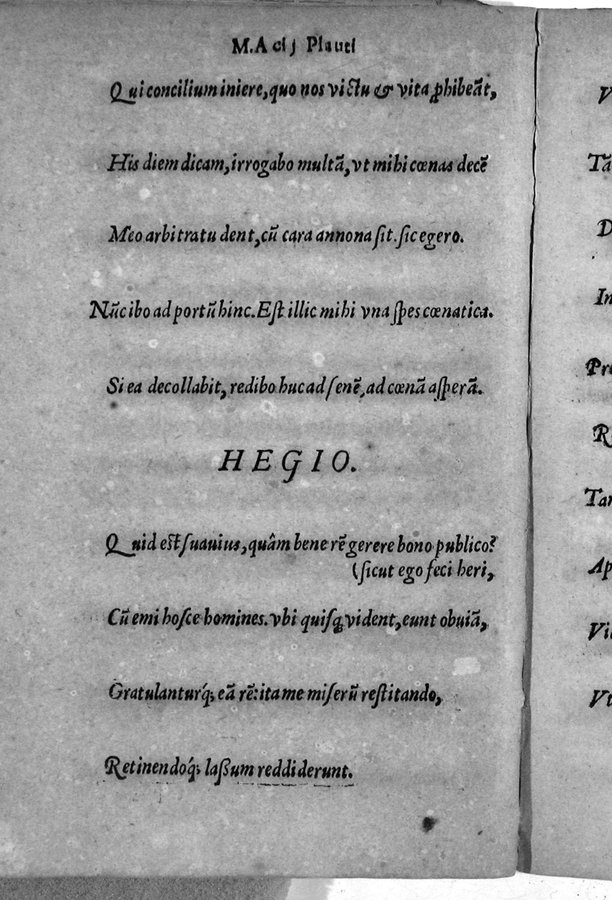 M. Acij Plauti
Qui concilium iniere, quo nos victu & vita ꝓhibeãt,
His diem dicam, irrogabo multã, vt mihi cœnas decẽ
Meo arbitratu dent, cũ cara annona ſit. ſic egero.
Nũc ibo ad portũ hinc. Eſt illic mihi vna ſpes cœnatica.
Si ea decollabit, redibo huc ad ſenẽ, ad cœnã aſperã.
HEGIO.
Quid eſt ſuauius, quâm bene rẽ gerere bono publico?
(ſicut ego feci heri,
Cũ emi hoſce homines. vbi quiſq; vident, eunt obuiã,
Gratulanturq́; eã rẽ: ita me miſerũ reſtitando,
Retinendoq́; laßum reddiderunt.
V
Tã
D
In
Pro
R
Tan
Ap
Vi
Vt